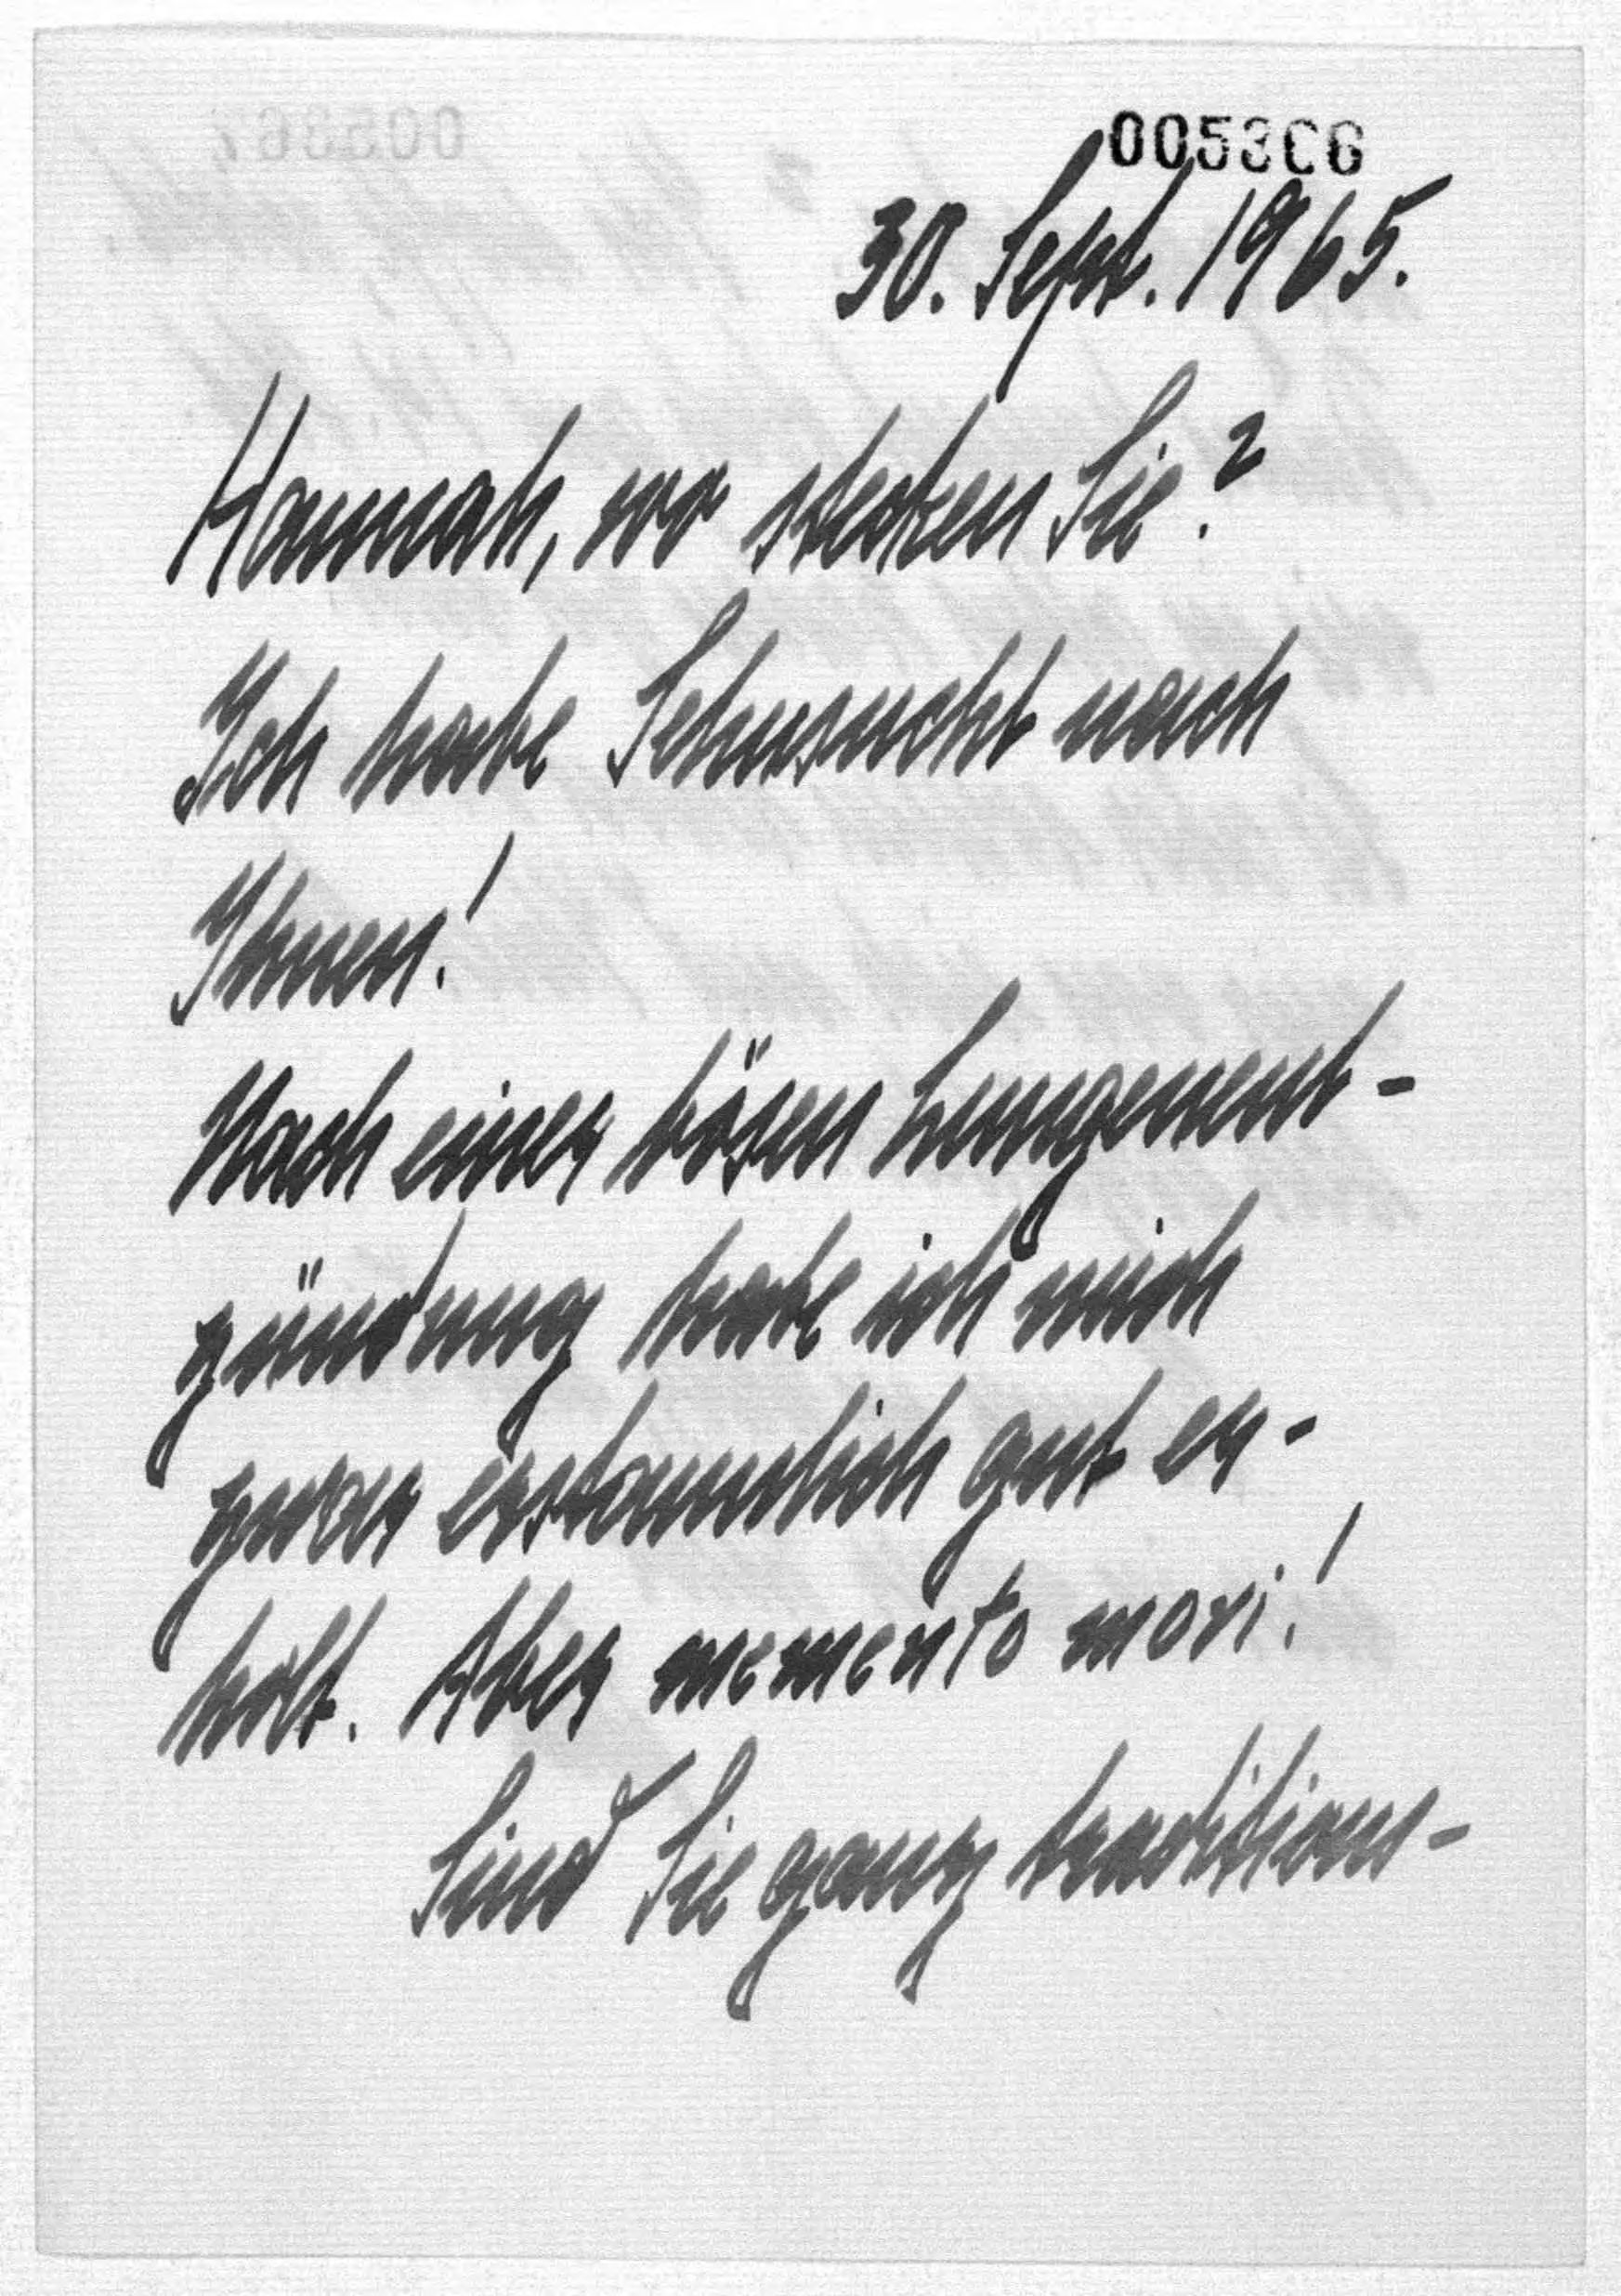 005366
30. Sept. 1965.
Hannah, wo stecken Sie?
Ich habe Sehnsucht nach
Ihnen!
Nach einer bösen Lungenent-
zündung habe ich mich
zwar erstaunlich gut er-
holt. Aber memento mori!
Sind Sie ganz traditions-